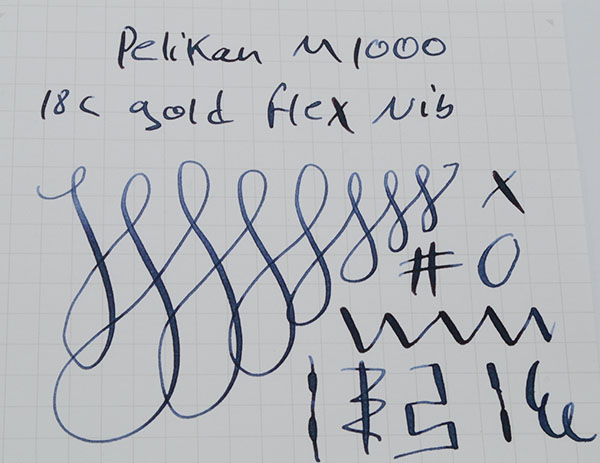 Pelikan M1000
18c gold flex Nib
x
# 0